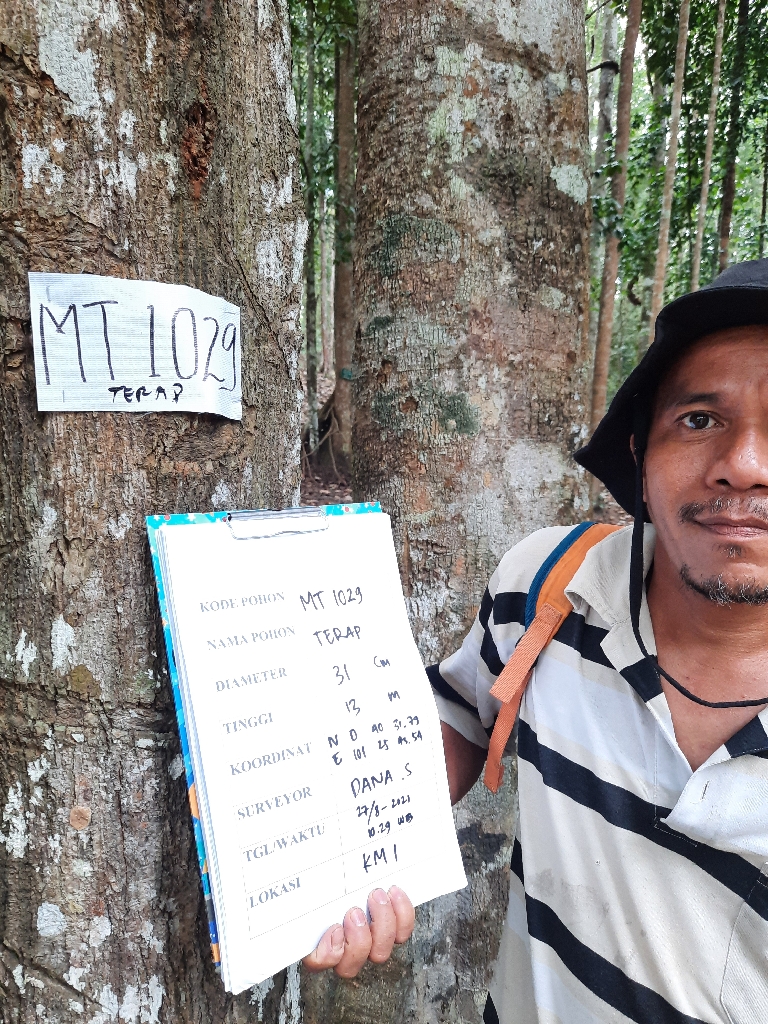 MT 1029
TERAP
KODE POHON MT 1029
NAMA POHON TERAP
DIAMETER 31 Cm
TINGGI 13 m
KOORDINAT N 0 40 31.79
E 101 25 45.54
SURVEYOR DANA.S
TGL/WAKTU 27/8-2021
10.29 WIB
LOKASI KM 1